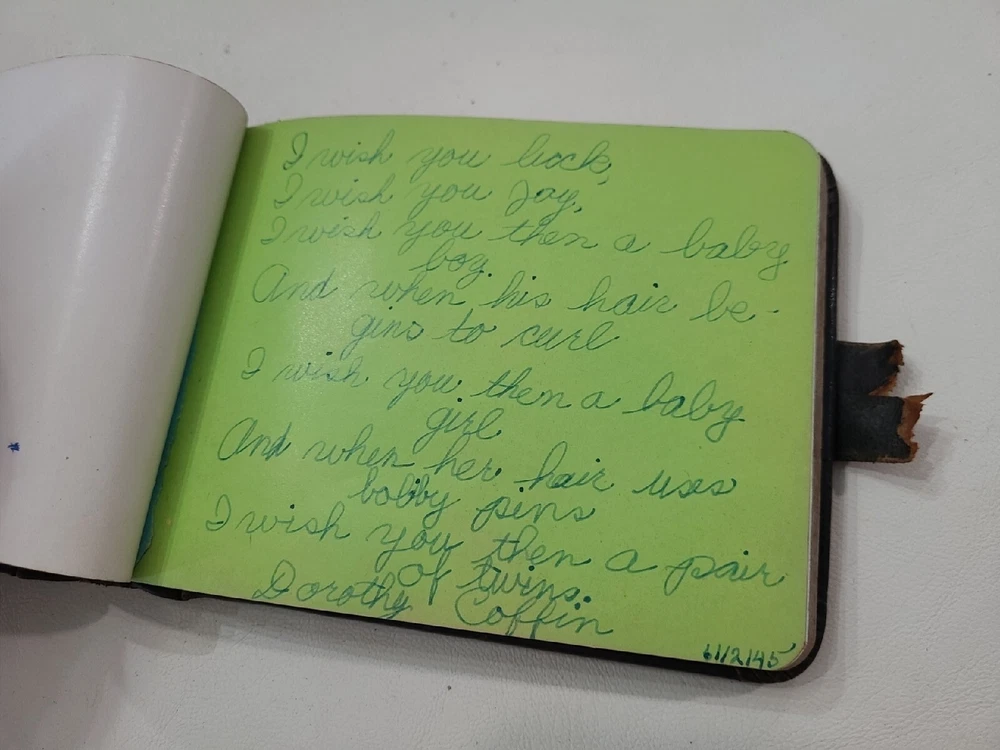 I wish you luck,
I wish you Joy,
I wish you then a baby
boy.
And when his hair be-
gins to curl
I wish you then a baby
girl
And when her hair uses
bobby pins
I wish you then a pair
of twins.
Dorothy Coffin
6/12/45